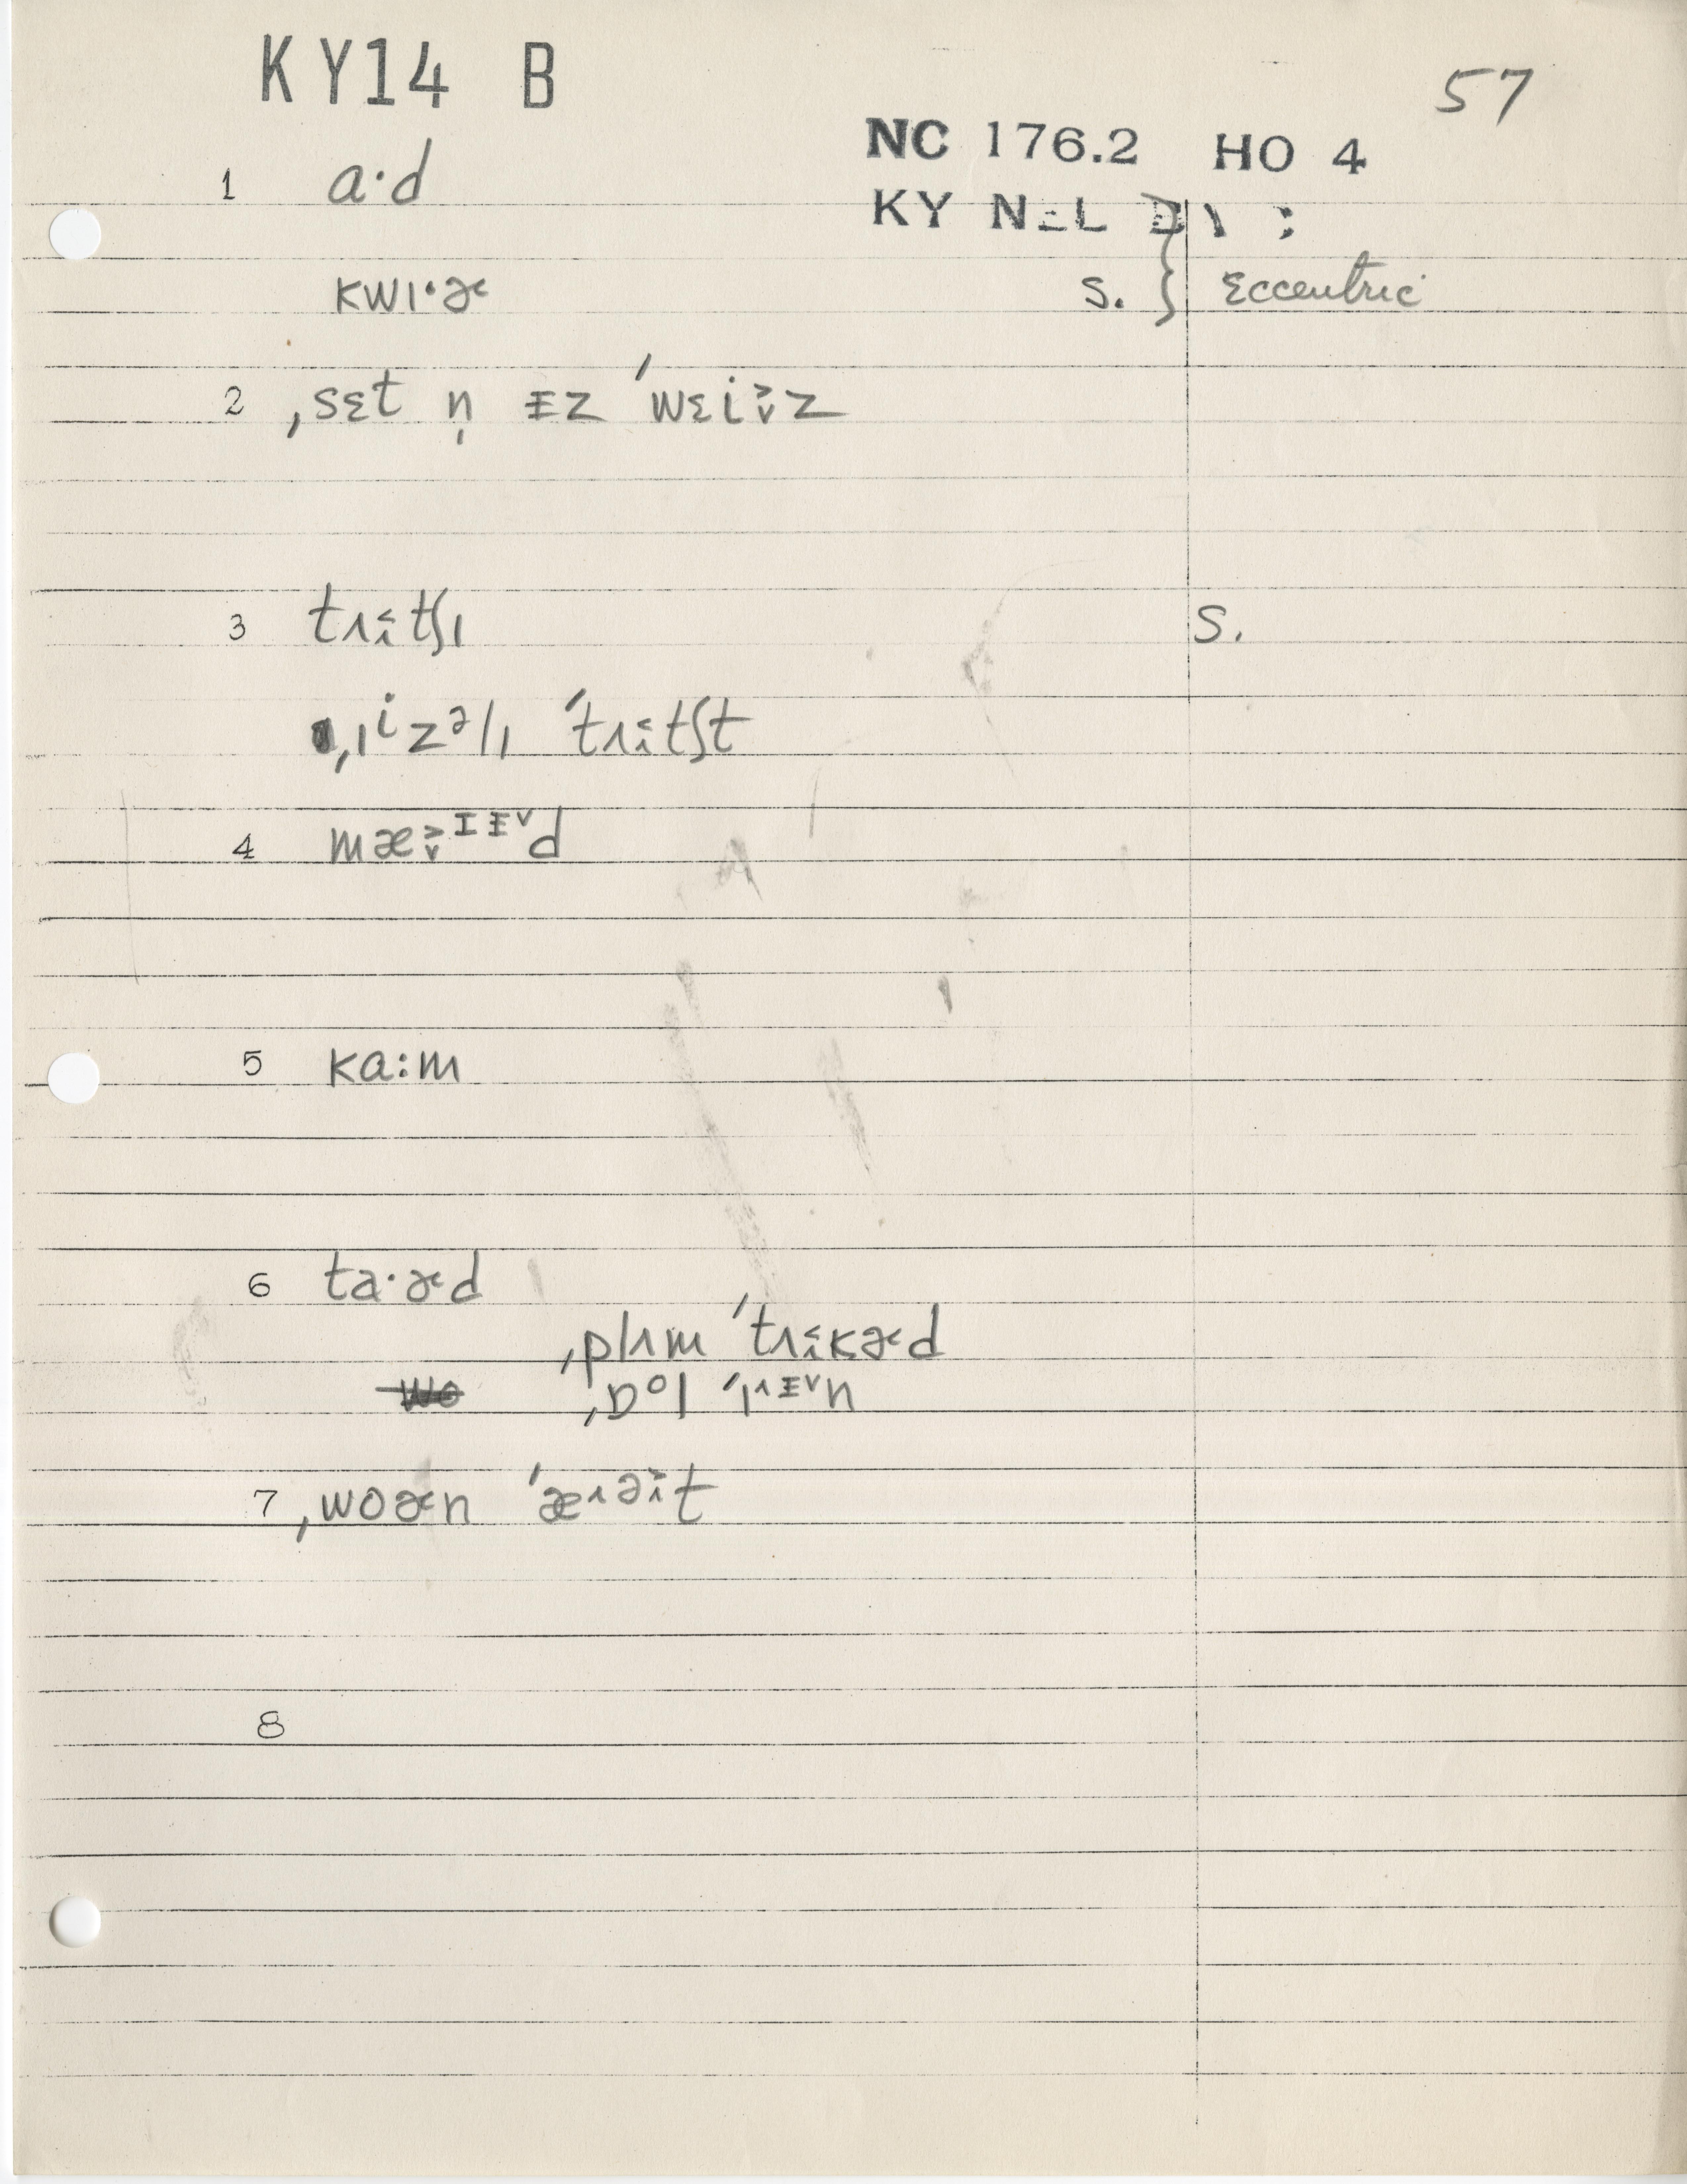 KY14 B
57
NC 176.2 HO 4
KY
1 ɑ·d
kwɪ·ɚ s. } Eccentric
2 ˌsɛt n̩ ɪz ˈwɛiz
3 tʌtʃɪ s.
ˌizəlɪ ˈtʌtʃt
4 mæd
5 kɑ:m
6 tɑ·ɚd
ˌplʌm ˈtʌkɚd
ˌɒol ˈɪn
7 ˌwoɚn ˈæʊt
8